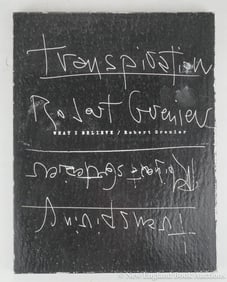 Transpiration
Robert Grenier
WHAT I BELIEVE / Robert Grenier
Robert Grenier
Transpiring
© New England Book Auctions